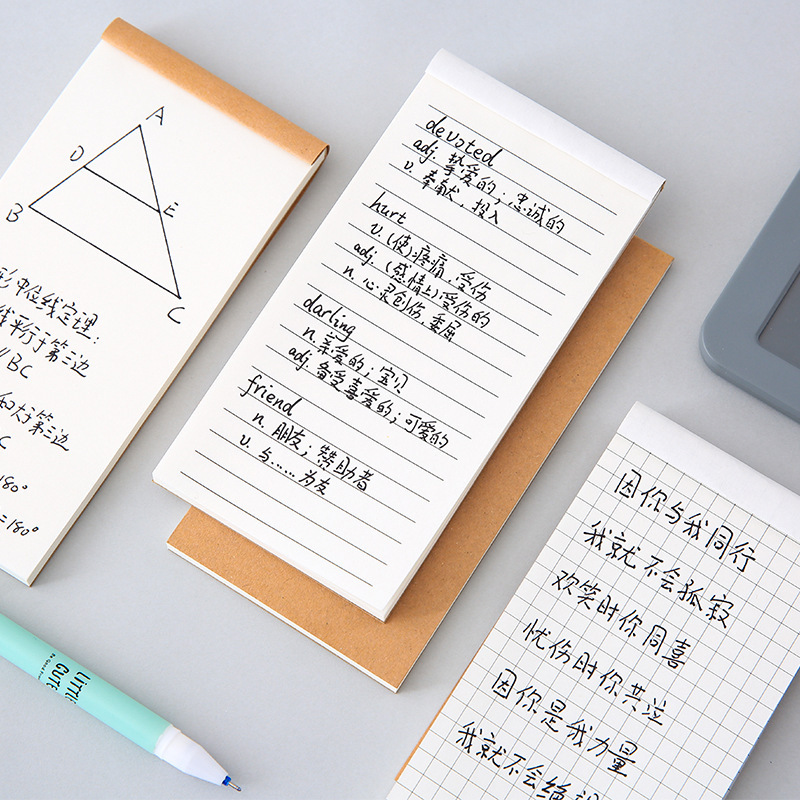 A
D
E
B
C
形中位线定理:
线平行于第三边
//BC
和大于第三边
C
180°
=180°
devoted
adj. 挚爱的；忠诚的
v. 奉献，投入
hurt
v. (使)疼痛，受伤
adj. (感情上)受伤的
n. 心灵创伤，委屈
darling
n. 亲爱的；宝贝
adj. 备受喜爱的；可爱的
friend
n. 朋友；赞助者
v. 与……为友
因你与我同行
我就不会孤寂
欢笑时你同喜
忧伤时你共泣
因你是我力量
我就不会绝
LITTLE
CUTE